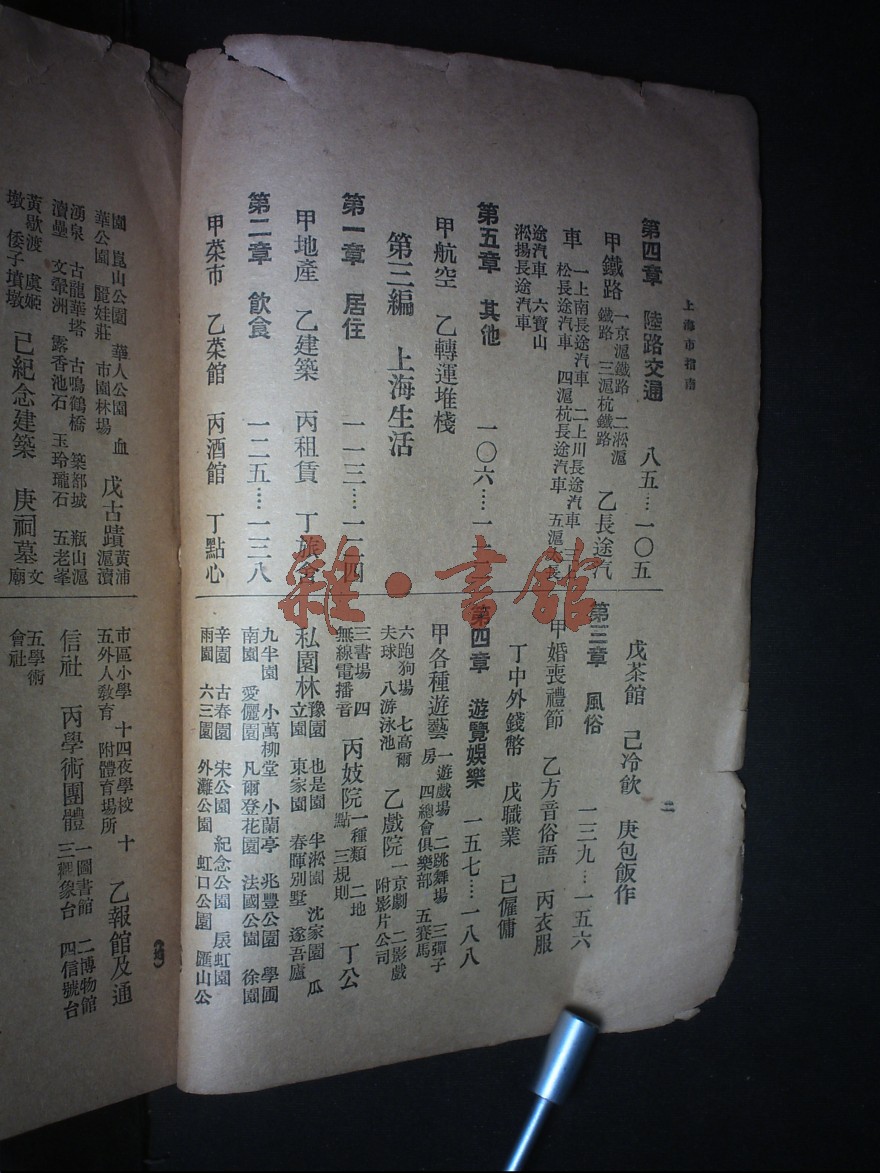 上海市指南
二
第四章　陸路交通　八五…一〇五
甲鐵路　一京滬鐵路　二淞滬
鐵路　三滬杭鐵路　乙長途汽
車　一上南長途汽車　二上川長途汽車　三上
松長途汽車　四滬杭長途汽車　五滬太長
途汽車　六寶山
淞揚長途汽車
第五章　其他　一〇六…一一
甲航空　乙轉運堆棧
第三編　上海生活
第一章　居住　一一三…一二四
甲地產　乙建築　丙租賃　丁旅舍
第二章　飲食　一二五…一三八
甲菜市　乙菜館　丙酒館　丁點心
戊茶館　己冷飲　庚包飯作
第三章　風俗　一三九…一五六
甲婚喪禮節　乙方音俗語　丙衣服
丁中外錢幣　戊職業　己僱傭
第四章　遊覽娛樂　一五七…一八八
甲各種遊藝　一遊戲場　二跳舞場　三彈子
房　四總會俱樂部　五賽馬
六跑狗場　七高爾
夫球　八游泳池　乙戲院　一京劇　二影戲
附影片公司
三書場　四
無線電播音　丙妓院　一種類　二地
點　三規則　丁公
私園林　豫園　也是園　半淞園　沈家園　瓜
立園　東家園　春暉別墅　遂吾廬
九半園　小萬柳堂　小蘭亭　兆豐公園　學圃
南園　愛儷園　凡爾登花園　法國公園　徐園
辛園　古春園　宋公園　紀念公園　扆虹園
雨園　六三園　外灘公園　虹口公園　匯山公
園　崑山公園　華人公園　血
華公園　麗娃莊　市園林場　戊古蹟　黃浦
滬瀆
湧泉　古龍華塔　古鳴鶴橋　築都城　瓶山滬
瀆壘　文犖洲　露香池石　玉玲瓏石　五老峯
黃歇渡　虞姬
墩　倭子墳墩　己紀念建築　庚祠墓　文
廟
市區小學　十四夜學校　十
五外人敎育　附體育場所　乙報館及通
信社　丙學術團體　一圖書館　二博物館
三觀象台　四信號台
五學術
會社
雜·書館